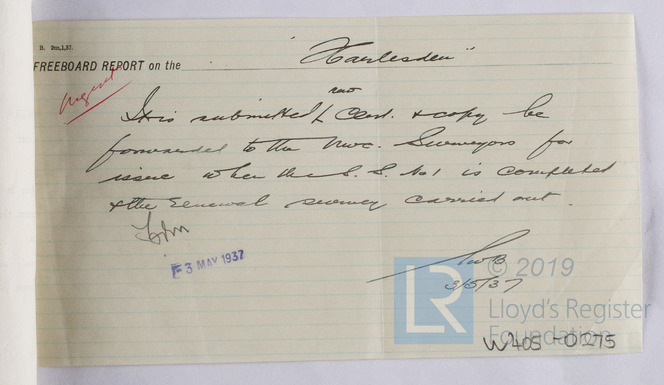 B. 2m,1,37.
FREEBOARD REPORT on the "Harlesden"
Urgent
new
It is submitted L Cert. & copy be
forwarded to the Nwc. Surveyors for
issue when the S. S. No 1 is completed
& the renewal survey carried out.
F 3 MAY 1937
3/5/37
© 2019
LR
Lloyd's Register
Foundation
W405-0275